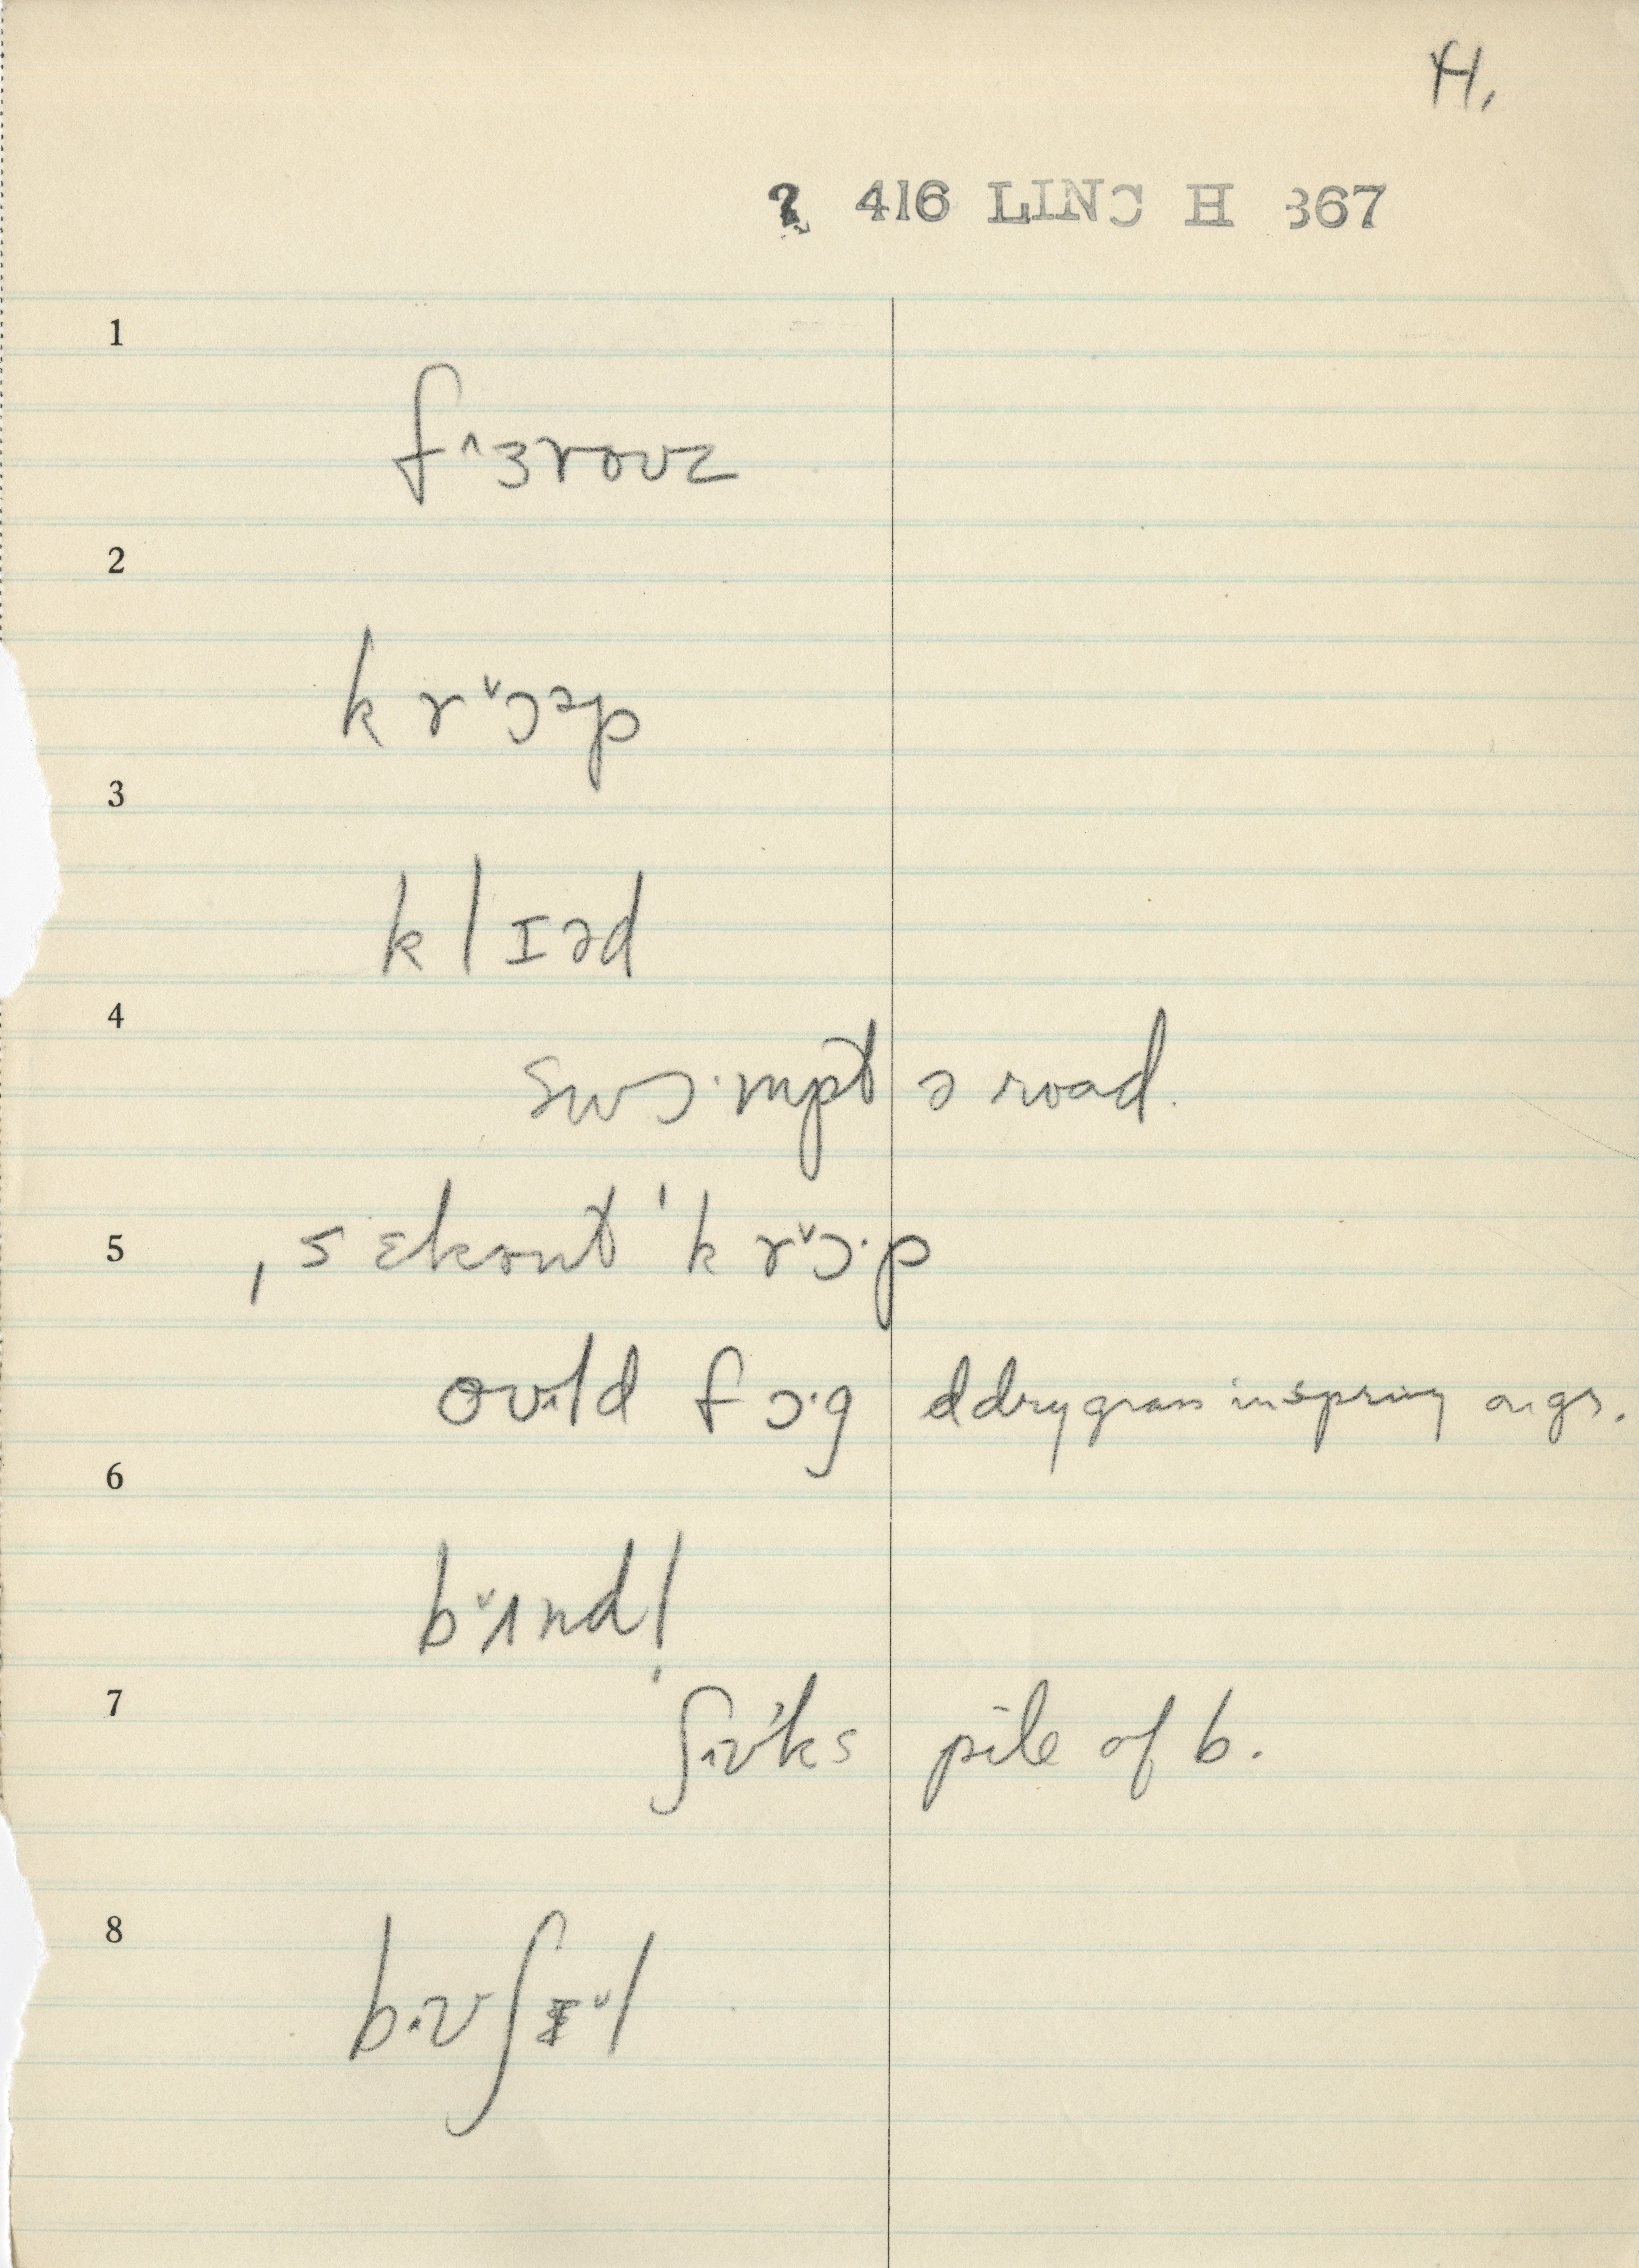 H.
? 416 LINC H 367
1
f˄ɜroʊz
2
k r˅ɔəp
3
k l ɪəd
4
swɔ·mpt ə road.
5
ˌsɛkənt ˈk r˅ɔ·p
oʊ·ld f ɔ·g ddry grass in spring orgs.
6
b˅ʌndl̩
7
ʃɒ’ks pile of b.
8
b·ʊʃɪ˅l